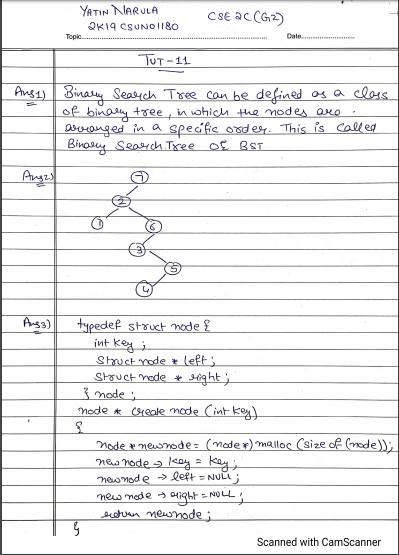 YATIN NARULA
CSE 2C (G2)
2K19CSUN01180
Topic
Date
TUT-11
Ans1) Binary Search Tree can be defined as a class
of binary tree, in which the nodes are
arranged in a specific order. This is called
Binary Search Tree OR BST
Ans2)
7
2
1 6
3
5
4
Ans3) typedef struct node {
int key ;
Struct node * left ;
Struct node * right ;
} node ;
node * create node (int key)
{
node * newnode = (node*) malloc (size of (node)) ;
newnode → key = key ;
newnode → left = NULL ;
new node → right = NULL ;
return newnode ;
}
Scanned with CamScanner